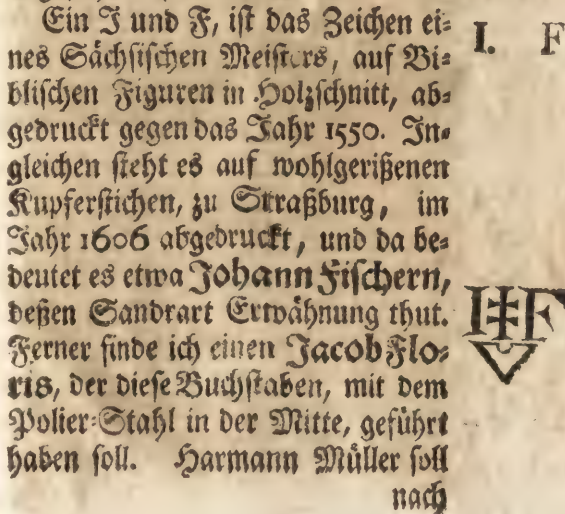 Ein J und F, ist das Zeichen ei=
nes Sächsischen Meisters, auf Bi=
blischen Figuren in Holzschnitt, ab=
gedruckt gegen das Jahr 1550. In=
gleichen steht es auf wohlgerißenen
Kupferstichen, zu Straßburg, im
Jahr 1606 abgedruckt, und da be=
deutet es etwa Johann Fischern,
deßen Sandrart Erwähnung thut.
Ferner finde ich einen Jacob Flo=
ris, der diese Buchstaben, mit dem
Polier=Stahl in der Mitte, geführt
haben soll. Harmann Müller soll
nach
I. F
I F